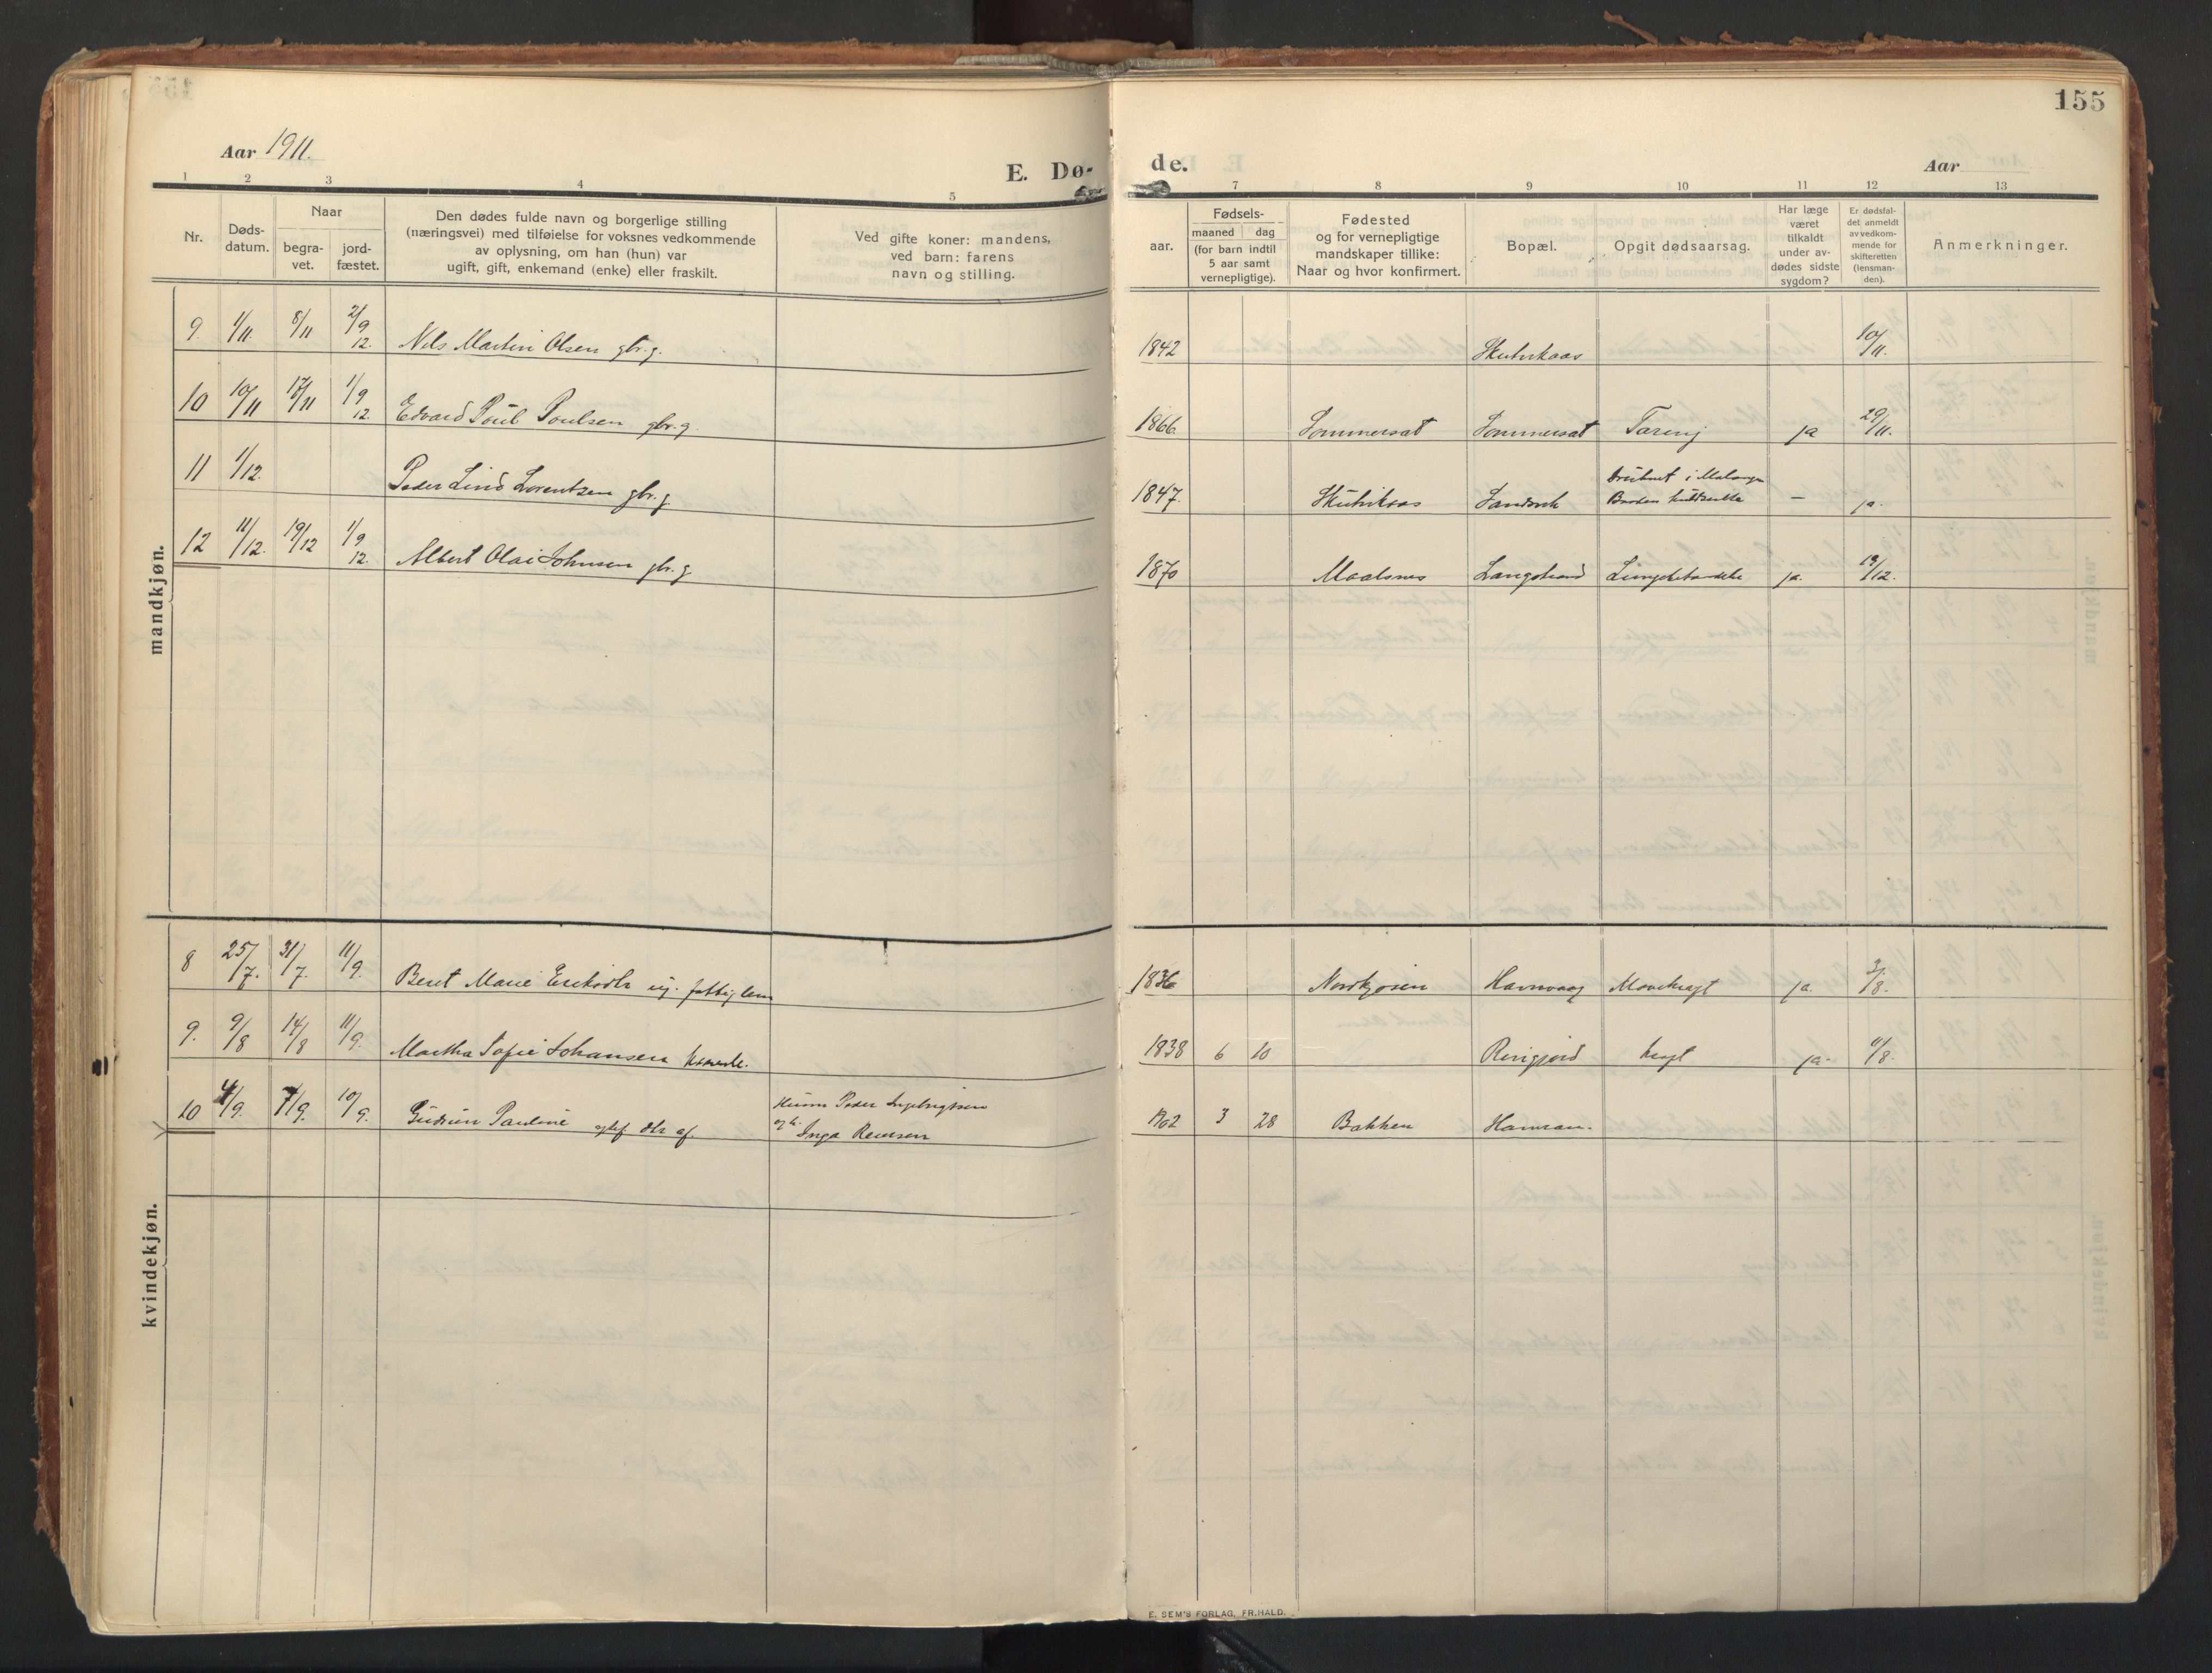 155
Aar 1911.
E. Dø-
de.
Aar
1 2 3 4 5
7 8 9 10 11 12 13
Nr.
Døds-
datum.
Naar
begra-
vet.
jord-
fæstet.
Den dødes fulde navn og borgerlige stilling
(næringsvei) med tilføielse for voksnes vedkommende
av oplysning, om han (hun) var
ugift, gift, enkemand (enke) eller fraskilt.
Ved gifte koner: mandens,
ved barn: farens
navn og stilling.
aar.
Fødsels-
maaned dag
(for barn indtil
5 aar samt
vernepligtige).
Fødested
og for vernepligtige
mandskaper tillike:
Naar og hvor konfirmert.
Bopæl.
Opgit dødsaarsag.
Har læge
været
tilkaldt
under av-
dødes sidste
sygdom?
Er dødsfal-
det anmeldt
av vedkom-
mende for
skifteretten
(lensman-
den).
Anmerkninger.
mandkjøn.
9 1/11 8/11 2/9 12. Nils Martin Olsen gbr.g. 1842 10/11.
10 10/11 17/11 1/9 12. Edvard Poul Poulsen gbr.g. 1866. Sommersæt Sommersæt Tæring ja 29/11.
11 1/12. Peder Lind Lorentzen gbr.g 1847. Sandvik Druknet i Malangen
Baaden — ja.
12 11/12. 19/12 1/9 12. Albert Olai Johnsen gbr.g 1870 Maalsnes Langstrand ja. 19/12.
kvindekjøn.
8 25/7. 31/7. 11/9. Beret Marie Eriksdtr ug. fattiglem 1836 Nordkjosen Havnvaag ja. 3/8.
9. 9/8 14/8 11/9. Martha Sofie Johansen 1838 6 10 ja. 11/8.
10 4/9. 7/9. 10/9. Gudrun Pauline dtr af. Peder Ingebrigtsen
og h. Inga 1902 3 28 Bakken
E. SEM'S FORLAG, FR.HALD.